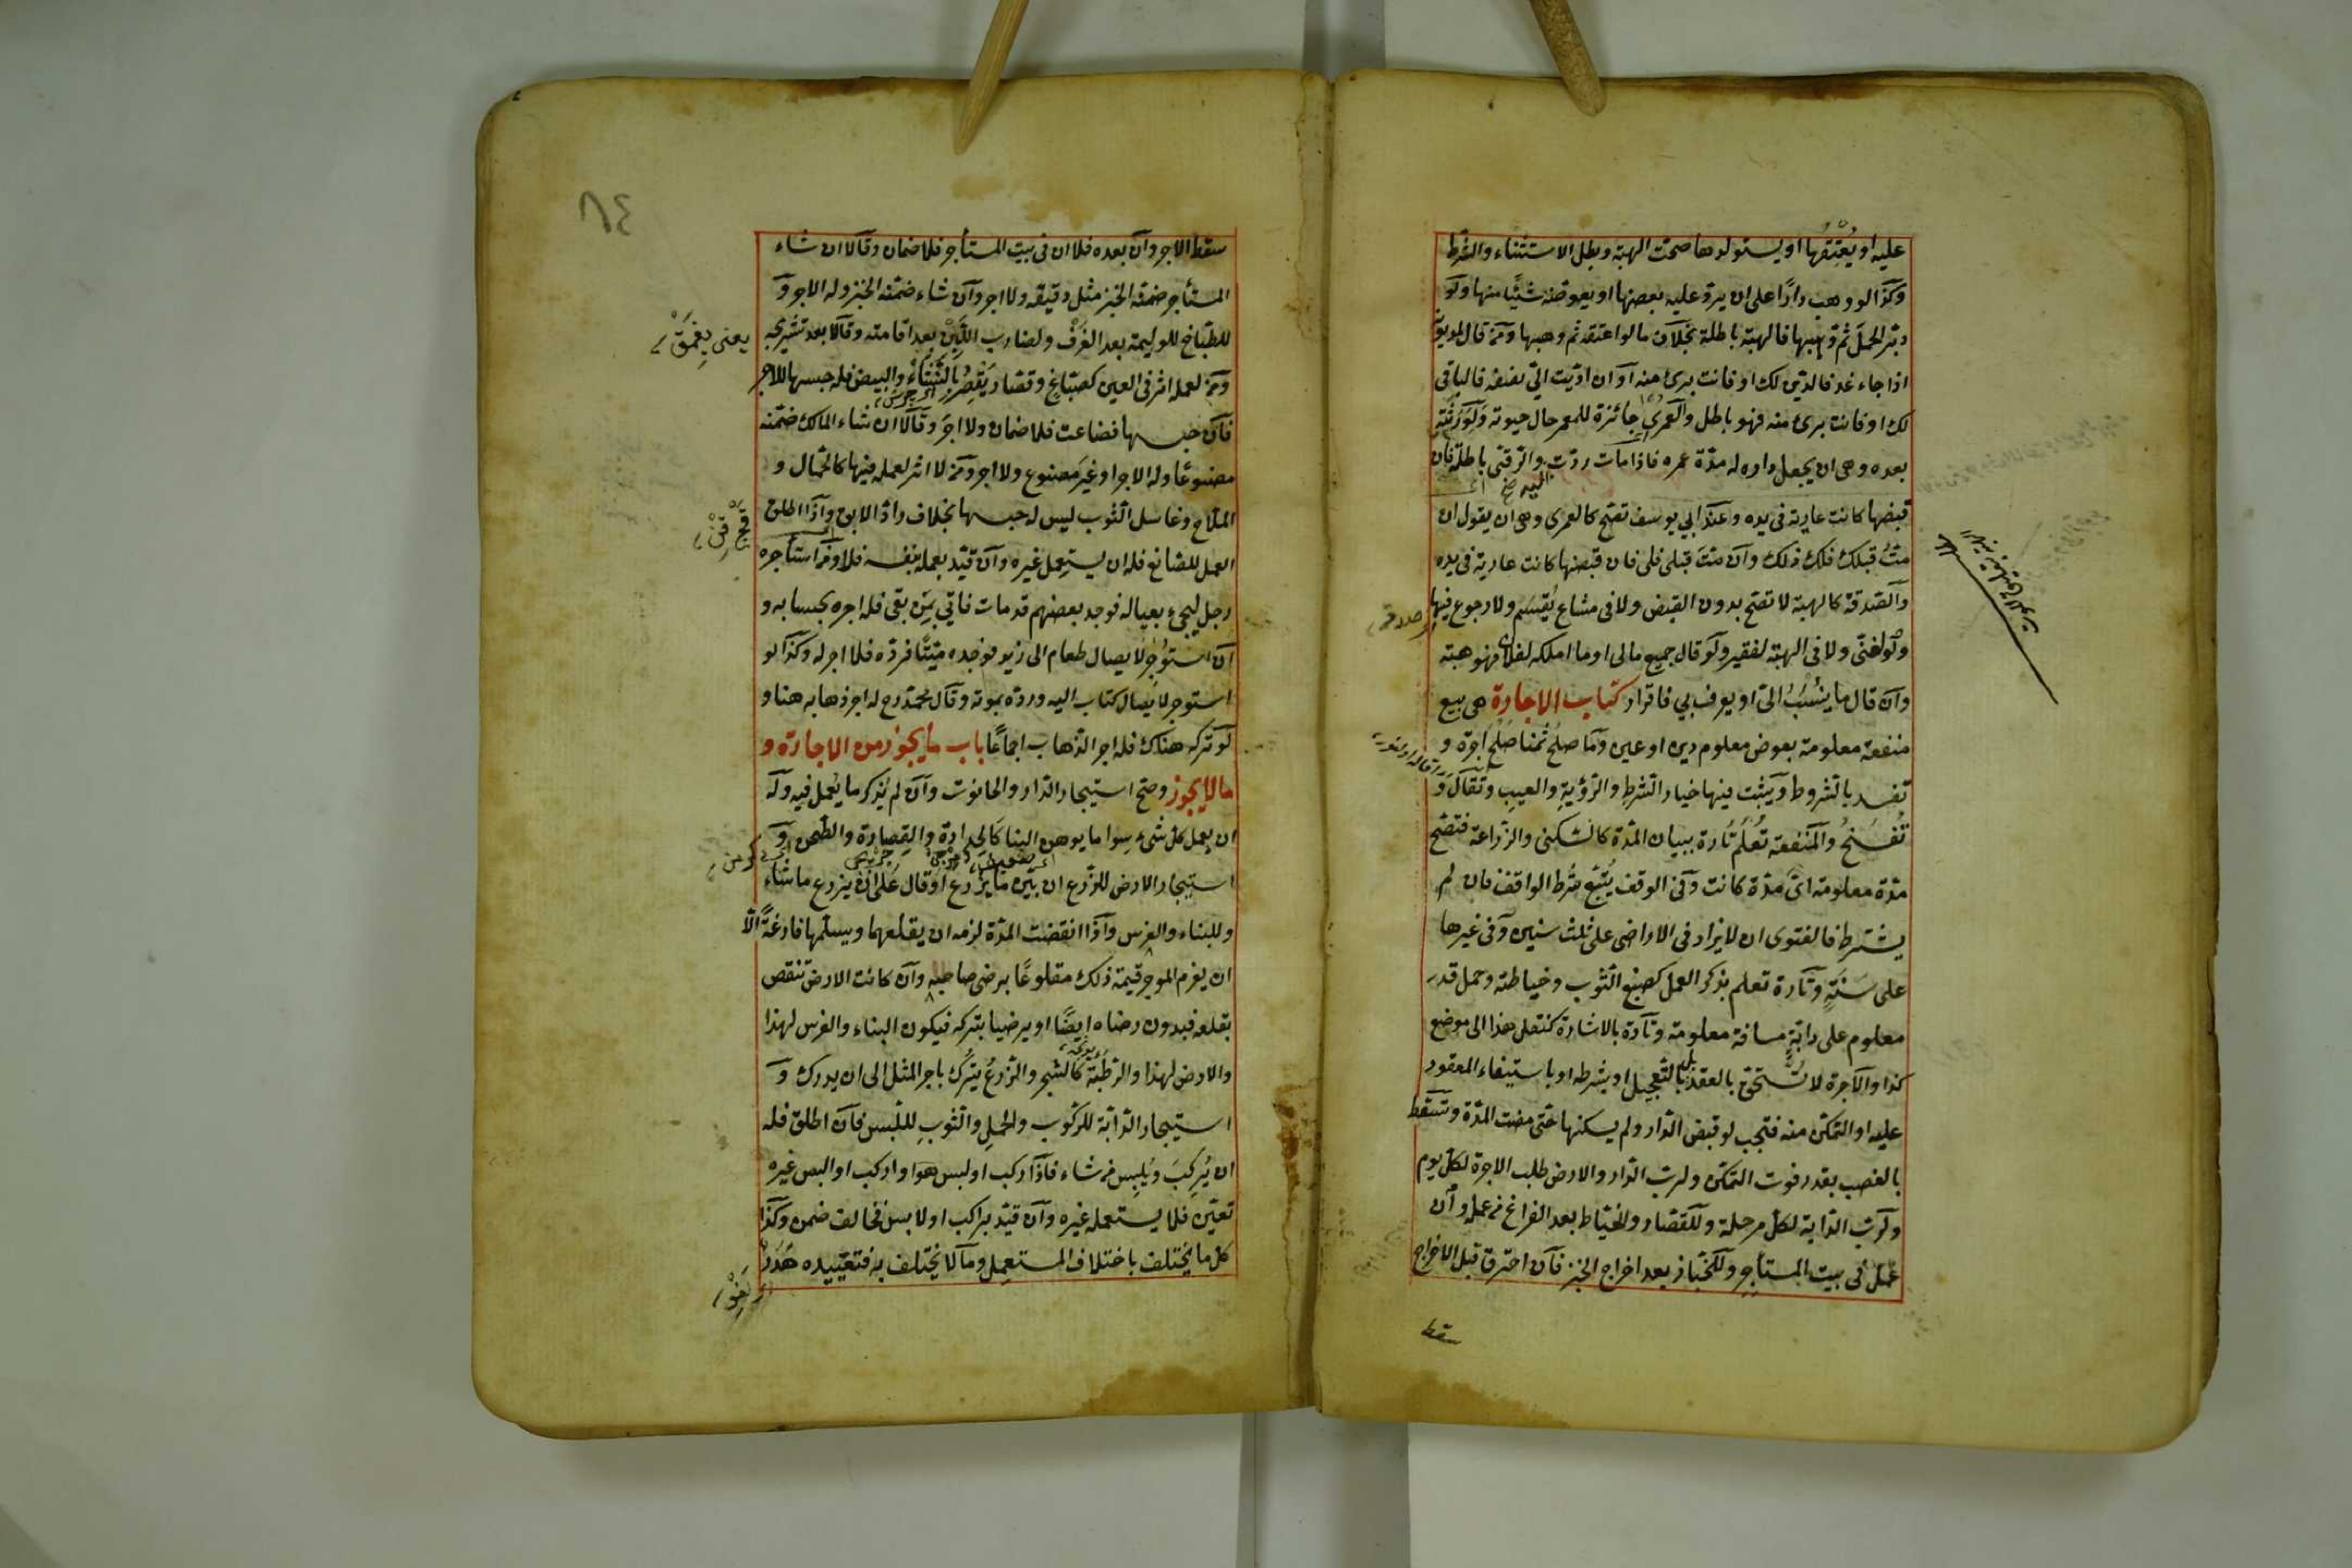 عليه او يُعْتِقَها او يستولدها صحت الهبة وبطل الاستثناء والشرط
وكذا لو وهب دارًا على ان يرد عليه بعضها او يعوضه شيئًا منها ولو
دبّر الحمل ثم وهبها فالهبة باطلة بخلاف ما لو اعتقه ثم وهبها ومن قال لمديونه
اذا جاء غد فالدين لك او فانت برئ منه او ان ادّيت اليّ نصفه فالباقي
لك او فانت برئ منه فهو باطل والعمرى جائزة للمعمر حال حيوته ولورثته
بعده وهى ان يجعل داره له مدّة عمره فاذا مات ردّت اليه والرقبى باطلة فان
قبضها كانت عارية فى يده وعند ابي يوسف تصح كالعمرى وهى ان يقول ان
متُّ قبلك فلك ذلك وان متَّ قبلى فلى فان قبضها كانت عارية فى يده
والصدقة كالهبة لا تصح بدون القبض ولا فى مشاع يُقْسَم ولا رجوع فيها
ولو لغنى ولا فى الهبة لفقير ولو قال جميع مالى او ما املكه لفلان فهو هبة
وان قال ما يُنْسَبُ اليّ او يعرف بي فاقرار كتاب الاجارة هى بيع
منفعة معلومة بعوض معلوم دين او عين وما صلح ثمنا صلح اجرة و
تفسد بالشروط ويثبت فيها خيار الشرط والرؤية والعيب وتقال و
تُفسخ والمنفعة تُعلم تارة ببيان المدّة كالسكنى والزراعة فتصح
مدّة معلومة اىّ مدّة كانت وفى الوقف يُتّبع شرط الواقف فان لم
يشترط فالفتوى ان لا يزاد فى الاراضى على ثلث سنين وفى غيرها
على سنةٍ وتارة تعلم بذكر العمل كصبغ الثوب وخياطته وحمل قدر
معلوم على دابّةٍ مسافة معلومة وتارة بالاشارة كنقل هذا الى موضع
كذا والاجرة لا تُستحق بالعقد بل بالتعجيل او بشرطه او باستيفاء المعقود
عليه او التمكن منه فتجب لو قبض الدار ولم يسكنها حتى مضت المدّة وتسقط
بالغصب بقدر فوت التمكن ولرب الدار والارض طلب الاجرة لكل يوم
ولرب الدابة لكل مرحلة وللقصار والخياط بعد الفراغ من عمله وان
عمل فى بيت المستأجر وللخباز بعد اخراج الخبز فان احترق قبل الاخراج
سقط
٨٤
سقط الاجر وان بعده فلا ان فى بيت المستأجر فلا ضمان وقالا ان شاء
المستأجر ضمنه الخبز مثل دقيقه ولا اجر وان شاء ضمنه الخبز وله الاجر و
للطبّاخ للوليمة بعد الغرف ولضارب اللَّبِن بعد اقامته وقالا بعد تشريجه
ومن لعمله اثر فى العين كصبّاغ وقصّار يَقْصِر بالنشاء والبيض فله حبسها للاجر
فان حبسها فضاعت فلا ضمان ولا اجر وقالا ان شاء المالك ضمّنه
مصنوعًا وله الاجر او غير مصنوع ولا اجر ومن لا اثر لعمله فيها كالحمّال و
الملّاح وغاسل الثوب ليس له حبسها بخلاف رادّ الابق واذا اطلق
العمل للصانع فله ان يستعمل غيره وان قيّد بعمله بنفسه فلا ومن استأجره
رجل ليجيء بعياله فوجد بعضهم قد مات فاتى بمن بقى فله اجره بحسابه و
ان استوجر لايصال طعام الى زيد فوجده ميّتًا فردّه فلا اجر له وكذا لو
استوجر لايصال كتاب اليه وردّه بموته وقال محمّد رح له اجر ذهابه هنا و
لو تركه هناك فله اجر الذهاب اجماعًا باب ما يجوز من الاجارة و
ما لا يجوز وصح استيجار الدار والحانوت وان لم يُذكر ما يُعمل فيه وله
ان يعمل كل شىء سوا ما يوهن البنا كالحدادة والقصارة والطحن و
استيجار الارض للزرع ان بيّن ما يزرع او قال على ان يزرع ما شاء
وللبناء والغرس واذا انقضت المدّة لزمه ان يقلعهما ويسلّمها فارغةً الّا
ان يغرم الموجر قيمة ذلك مقلوعًا برضى صاحبه وان كانت الارض تنقص
بقلعه فبدون رضاه ايضًا او يرضيا بتركه فيكون البناء والغرس لهذا
والارض لهذا والرطبة كالشجر والزرع يُترك باجر المثل الى ان يدرك و
استيجار الدابّة للركوب والحمل والثوب للّبس فان اطلق فله
ان يُركب ويُلبس من شاء فاذا ركب او لبس هو او اركب او البس غيره
تعيّن فلا يستعمله غيره وان قيّد براكب او لابس فخالف ضمن وكذا
كل ما يختلف باختلاف المستعمل وما لا يختلف به فتقييده هَدَرٌ